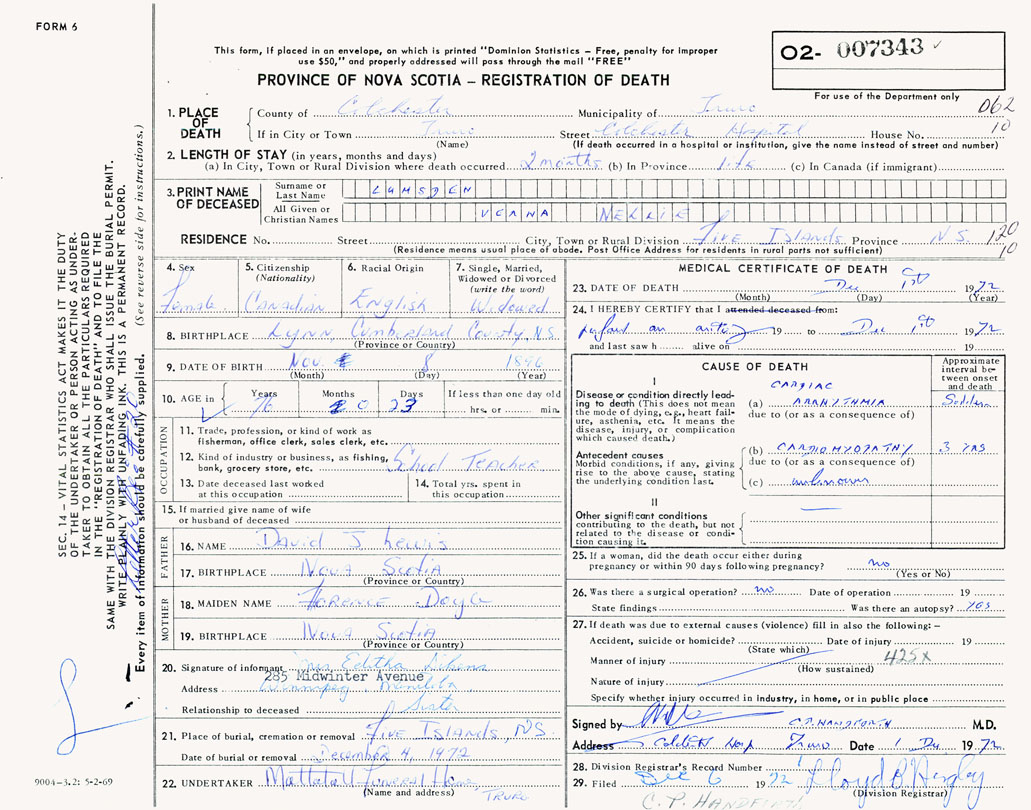 FORM 6
This form, if placed in an envelope, on which is printed "Dominion Statistics – Free, penalty for improper
use $50," and properly addressed will pass through the mail "FREE"
PROVINCE OF NOVA SCOTIA – REGISTRATION OF DEATH
02- 007343
For use of the Department only
062
10
1. PLACE OF DEATH
County of Colchester Municipality of Truro
If in City or Town Truro Street Colchester Hospital House No.
(Name) (If death occurred in a hospital or institution, give the name instead of street and number)
2. LENGTH OF STAY (in years, months and days)
(a) In City, Town or Rural Division where death occurred 2 months (b) In Province Life (c) In Canada (if immigrant)
3. PRINT NAME OF DECEASED
Surname or Last Name LUMSDEN
All Given or Christian Names VERNA NELLIE
RESIDENCE No. Street City, Town or Rural Division FIVE ISLANDS Province N.S. 120
10
(Residence means usual place of abode. Post Office Address for residents in rural parts not sufficient)
4. Sex Female
5. Citizenship (Nationality) Canadian
6. Racial Origin English
7. Single, Married, Widowed or Divorced (write the word) Widowed
8. BIRTHPLACE Lynn, Cumberland County, N.S.
(Province or Country)
9. DATE OF BIRTH Nov. 8 1896
(Month) (Day) (Year)
10. AGE in Years 76 Months 0 Days 23 If less than one day old hrs. or min.
OCCUPATION
11. Trade, profession, or kind of work as fisherman, office clerk, sales clerk, etc.
12. Kind of industry or business, as fishing, bank, grocery store, etc. School Teacher
13. Date deceased last worked at this occupation
14. Total yrs. spent in this occupation
15. If married give name of wife or husband of deceased
FATHER
16. NAME David J Lewis
17. BIRTHPLACE Nova Scotia
(Province or Country)
MOTHER
18. MAIDEN NAME Florence Doyle
19. BIRTHPLACE Nova Scotia
(Province or Country)
20. Signature of informant Editha
285 Midwinter Avenue
Address Winnipeg, Manitoba
Relationship to deceased Sister
21. Place of burial, cremation or removal FIVE ISLANDS, NS
Date of burial or removal December 4, 1972
22. UNDERTAKER Mattatall Funeral Home
(Name and address) TRURO
MEDICAL CERTIFICATE OF DEATH
23. DATE OF DEATH Dec 1st 1972
(Month) (Day) (Year)
24. I HEREBY CERTIFY that I attended deceased from:
an 19 to Dec 1st 1972
and last saw h alive on 19
CAUSE OF DEATH
Approximate interval between onset and death
I
Disease or condition directly leading to death (This does not mean the mode of dying, e.g., heart failure, asthenia, etc. It means the disease, injury, or complication which caused death.)
CARDIAC
(a) ARRHYTHMIA Sudden
due to (or as a consequence of)
Antecedent causes
Morbid conditions, if any, giving rise to the above cause, stating the underlying condition last.
(b) CARDIOMYOPATHY 3 YRS
due to (or as a consequence of)
(c) unknown
II
Other significant conditions contributing to the death, but not related to the disease or condition causing it.
25. If a woman, did the death occur either during pregnancy or within 90 days following pregnancy? no
(Yes or No)
26. Was there a surgical operation? no Date of operation 19
State findings Was there an autopsy? YES
27. If death was due to external causes (violence) fill in also the following: –
Accident, suicide or homicide? Date of injury 19
(State which)
Manner of injury 425X
(How sustained)
Nature of injury
Specify whether injury occurred in industry, in home, or in public place
Signed by C.P. HANDFORTH M.D.
Address Hosp Truro Date 1 Dec 1972
28. Division Registrar's Record Number
29. Filed Dec 6 1972 Lloyd
(Division Registrar)
C. P. HANDFORTH
9004-3.2: 5-2-69
SEC. 14 – VITAL STATISTICS ACT MAKES IT THE DUTY
OF THE UNDERTAKER OR PERSON ACTING AS UNDER-
TAKER TO OBTAIN ALL THE PARTICULARS REQUIRED
IN THE "REGISTRATION OF DEATH" AND TO FILE THE
SAME WITH THE DIVISION REGISTRAR WHO SHALL ISSUE THE BURIAL PERMIT.
WRITE PLAINLY WITH UNFADING INK. THIS IS A PERMANENT RECORD.
Every item of information should be carefully supplied. (See reverse side for instructions.)